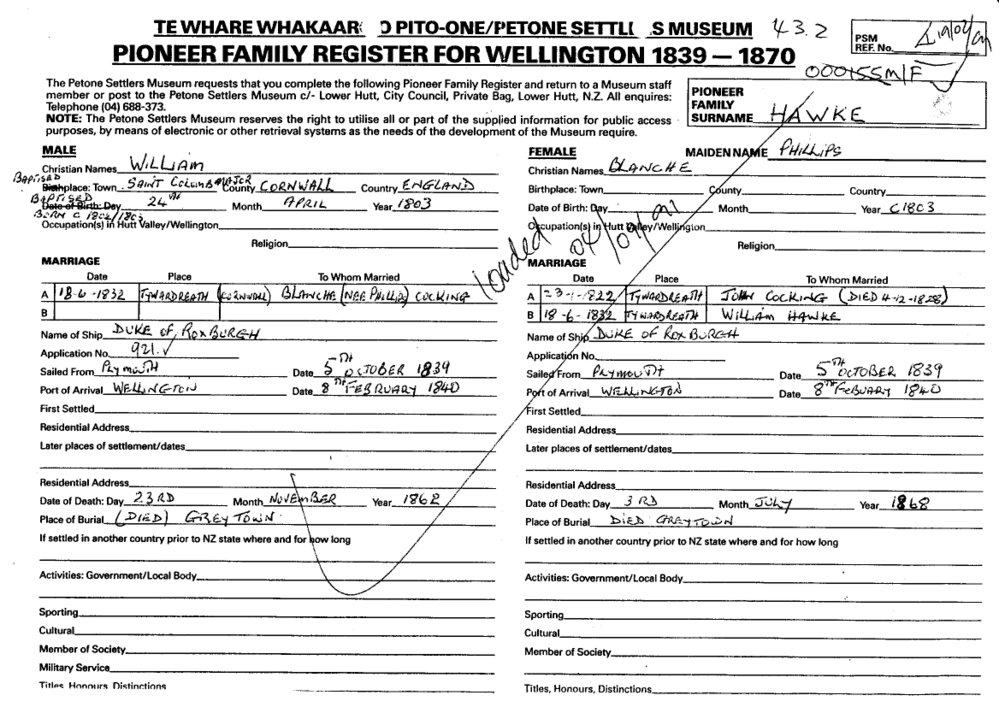 TE WHARE WHAKAAR O PITO-ONE/PETONE SETTL S MUSEUM 43.2
PIONEER FAMILY REGISTER FOR WELLINGTON 1839 — 1870
PSM
REF. No.
000155M/F
The Petone Settlers Museum requests that you complete the following Pioneer Family Register and return to a Museum staff
member or post to the Petone Settlers Museum c/- Lower Hutt, City Council, Private Bag, Lower Hutt, N.Z. All enquires:
Telephone (04) 688-373.
NOTE: The Petone Settlers Museum reserves the right to utilise all or part of the supplied information for public access
purposes, by means of electronic or other retrieval systems as the needs of the development of the Museum require.
PIONEER
FAMILY
SURNAME HAWKE
MALE
Christian Names WILLIAM
BAPTISED
Birthplace: Town SAINT COLUMB MAJOR County CORNWALL Country ENGLAND
BAPTISED
Date of Birth: Day 24TH Month APRIL Year 1803
BORN C 1802/1803
Occupation(s) in Hutt Valley/Wellington
Religion
MARRIAGE
Date Place To Whom Married
A 18-6-1832 TYWARDREATH (CORNWALL) BLANCHE (NEE PHILLIPS) COCKING
B
Name of Ship DUKE OF ROXBURGH
Application No. 921.
Sailed From PLYMOUTH Date 5TH OCTOBER 1839
Port of Arrival WELLINGTON Date 8TH FEBRUARY 1840
First Settled
Residential Address
Later places of settlement/dates
Residential Address
Date of Death: Day 23RD Month NOVEMBER Year 1862
Place of Burial (DIED) GREYTOWN
If settled in another country prior to NZ state where and for how long
Activities: Government/Local Body
Sporting
Cultural
Member of Society
Military Service
Titles Honours Distinctions
FEMALE MAIDEN NAME PHILLIPS
Christian Names BLANCHE
Birthplace: Town County Country
Date of Birth: Day Month Year C1803
Occupation(s) in Hutt Valley/Wellington
loaded
Religion
MARRIAGE
Date Place To Whom Married
A 23-1-1822 TYWARDREATH JOHN COCKING (DIED 4-12-1828)
B 18-6-1832 TYWARDREATH WILLIAM HAWKE
Name of Ship DUKE OF ROXBURGH
Application No.
Sailed From PLYMOUTH Date 5TH OCTOBER 1839
Port of Arrival WELLINGTON Date 8TH FEBUARY 1840
First Settled
Residential Address
Later places of settlement/dates
Residential Address
Date of Death: Day 3RD Month JULY Year 1868
Place of Burial DIED GREYTOWN
If settled in another country prior to NZ state where and for how long
Activities: Government/Local Body
Sporting
Cultural
Member of Society
Titles, Honours, Distinctions